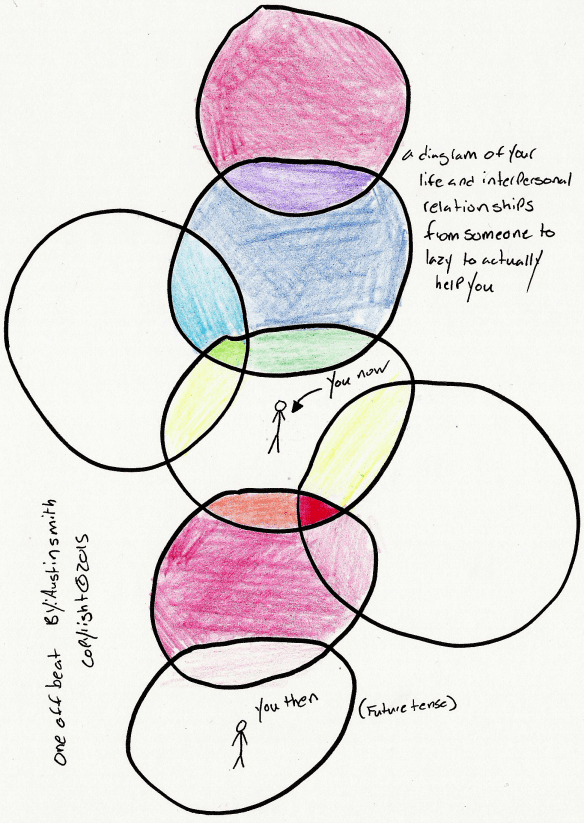 a diagram of your
life and interpersonal
relationships
from someone to
lazy to actually
help you
You now
You then
(Future tense)
one off beat By: Austin smith
copyright © 2015